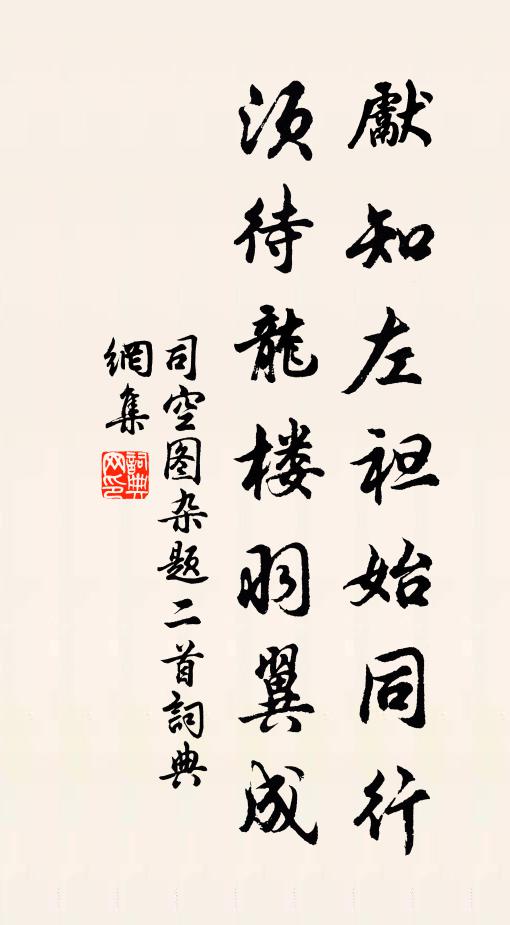 獻知左袒始同行
须待龍楼羽翼成
司空图杂题二首詞典
網集
詞典网印